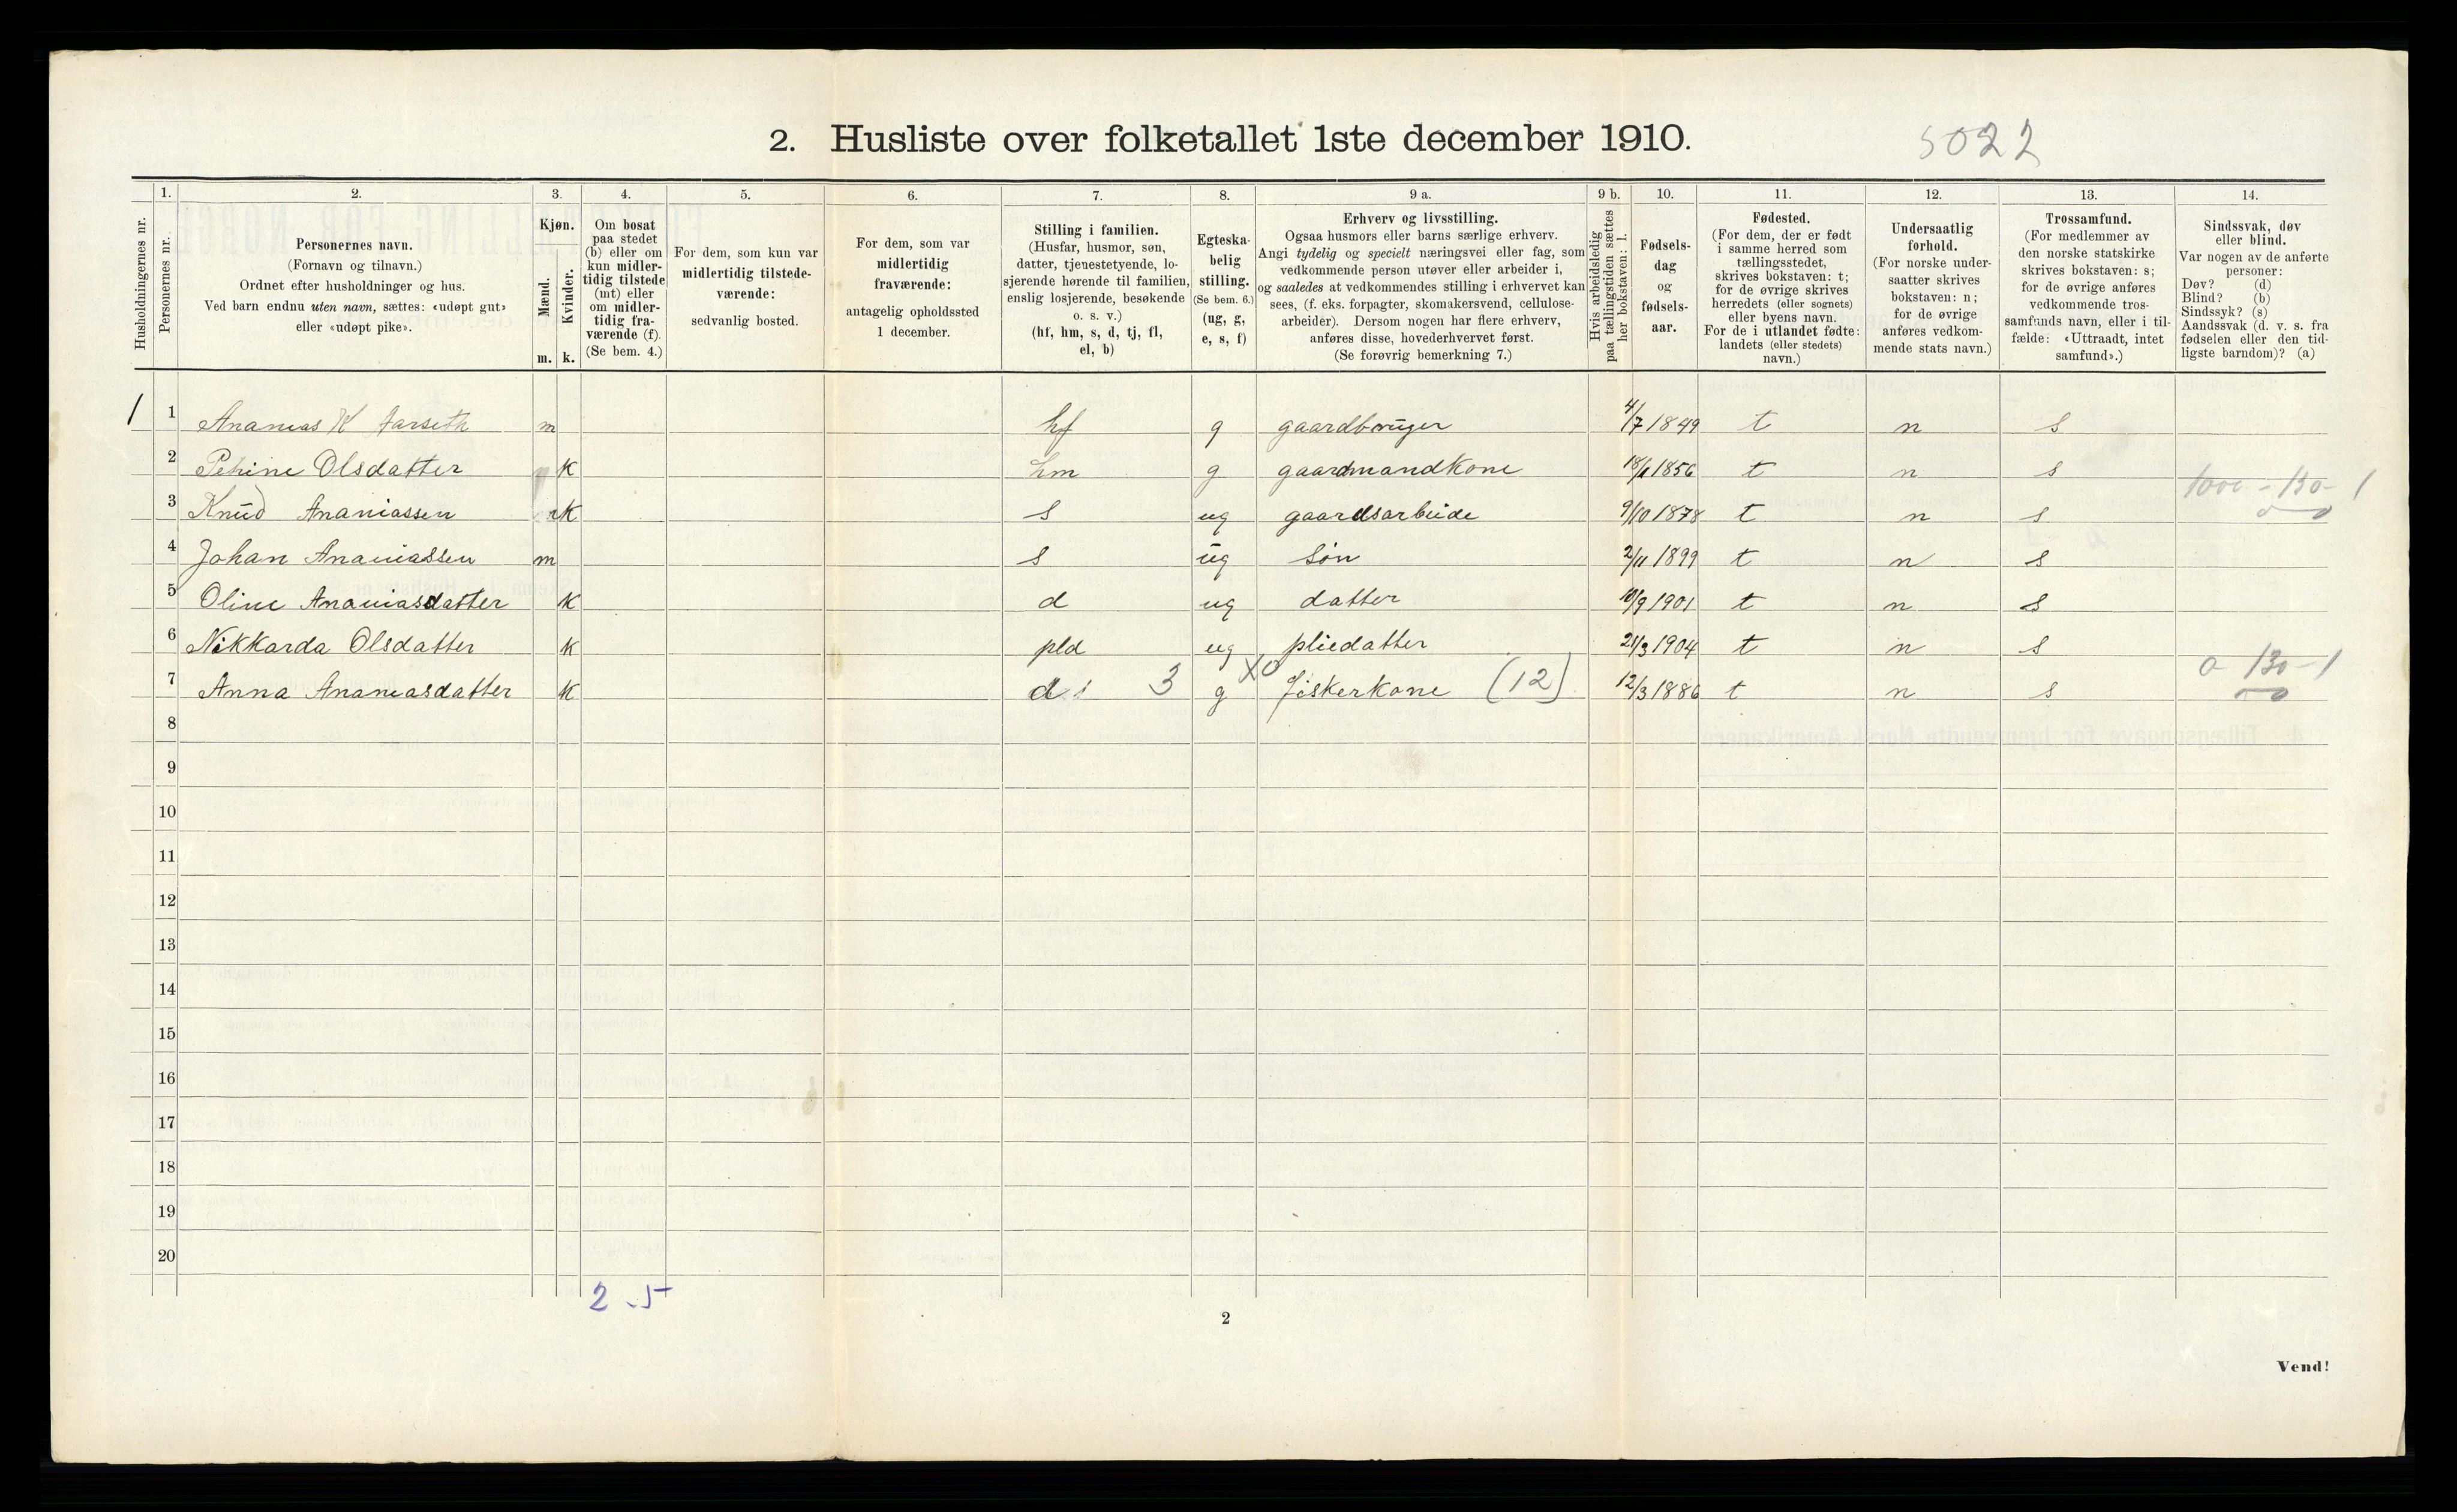 2. Husliste over folketallet 1ste december 1910.
5022
1. 2. 3. 4. 5. 6. 7. 8. 9 a. 9 b. 10. 11. 12. 13. 14.
Husholdningernes nr.
Personernes nr.
Personernes navn.
(Fornavn og tilnavn.)
Ordnet efter husholdninger og hus.
Ved barn endnu uten navn, sættes: «udøpt gut»
eller «udøpt pike».
Kjøn.
Mænd.
Kvinder.
m. k.
Om bosat
paa stedet
(b) eller om
kun midler-
tidig tilstede
(mt) eller
om midler-
tidig fra-
værende (f).
(Se bem. 4.)
For dem, som kun var
midlertidig tilstede-
værende:
sedvanlig bosted.
For dem, som var
midlertidig
fraværende:
antagelig opholdssted
1 december.
Stilling i familien.
(Husfar, husmor, søn,
datter, tjenestetyende, lo-
sjerende hørende til familien,
enslig losjerende, besøkende
o. s. v.)
(hf, hm, s, d, tj, fl,
el, b)
Egteska-
belig
stilling.
(Se bem. 6.)
(ug, g,
e, s, f)
Erhverv og livsstilling.
Ogsaa husmors eller barns særlige erhverv.
Angi tydelig og specielt næringsvei eller fag, som
vedkommende person utøver eller arbeider i,
og saaledes at vedkommendes stilling i erhvervet kan
sees, (f. eks. forpagter, skomakersvend, cellulose-
arbeider). Dersom nogen har flere erhverv,
anføres disse, hovederhvervet først.
(Se forøvrig bemerkning 7.)
Hvis arbeidsledig
paa tællingstiden sættes
her bokstaven: l.
Fødsels-
dag
og
fødsels-
aar.
Fødested.
(For dem, der er født
i samme herred som
tællingsstedet,
skrives bokstaven: t;
for de øvrige skrives
herredets (eller sognets)
eller byens navn.
For de i utlandet fødte:
landets (eller stedets)
navn.)
Undersaatlig
forhold.
(For norske under-
saatter skrives
bokstaven: n;
for de øvrige
anføres vedkom-
mende stats navn.)
Trossamfund.
(For medlemmer av
den norske statskirke
skrives bokstaven: s;
for de øvrige anføres
vedkommende tros-
samfunds navn, eller i til-
fælde: «Uttraadt, intet
samfund».)
Sindssvak, døv
eller blind.
Var nogen av de anførte
personer:
Døv? (d)
Blind? (b)
Sindssyk? (s)
Aandssvak (d. v. s. fra
fødselen eller den tid-
ligste barndom)? (a)
1 1 Ananias K Aarseth m hf g gaardbruger 4/7 1849 t n s
2 Petrine Olsdatter k hm g gaardmandkone 18/6 1856 t n s
3 Knud Ananiassen k s ug gaardsarbeide 9/10 1878 t n s 1000 - 130 - 1
4 Johan Ananiassen m s ug søn 2/11 1899 t n s
5 Oline Ananiasdatter k d ug datter 10/9 1901 t n s
6 Nikkarda Olsdatter k pld ug pliedatter 21/3 1904 t n s
7 Anna Ananiasdatter k d 3 g X0 fiskerkone (12) 12/3 1886 t n s 0 - 130 - 1
8
9
10
11
12
13
14
15
16
17
18
19
20
2 - 5
2
Vend!